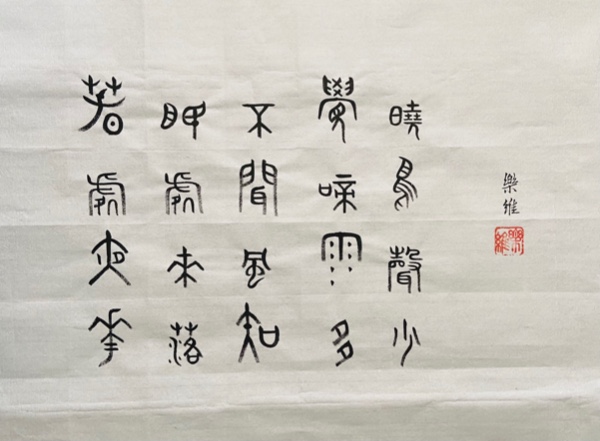 春眠不覺曉
處處聞啼鳥
夜来風雨聲
花落知多少
樂維